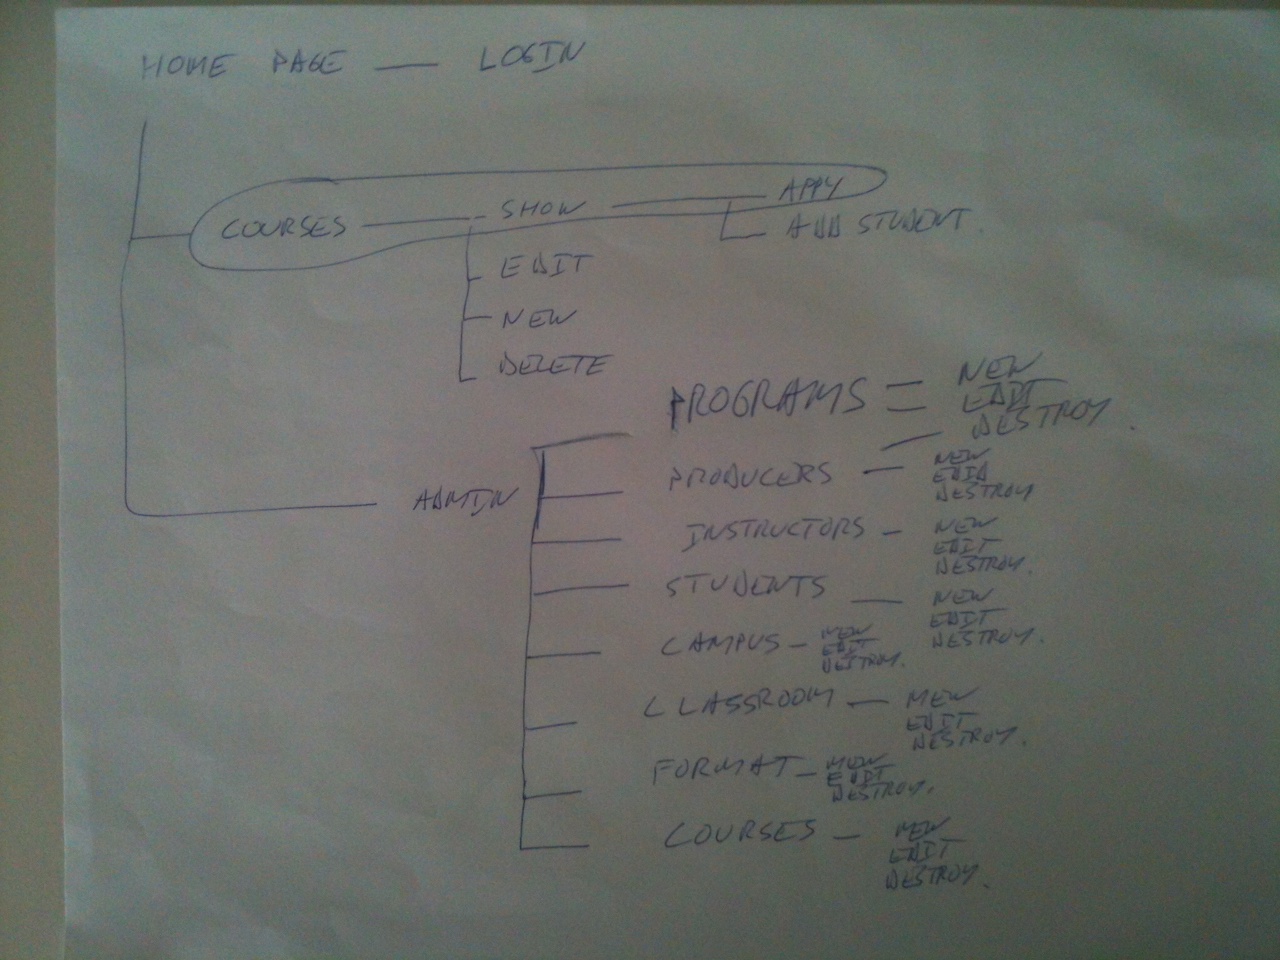 HOME PAGE — LOGIN
COURSES — SHOW — APPLY
EDIT
NEW
DELETE
ADD STUDENT.
ADMIN
PROGRAMS = NEW
EDIT
DESTROY
PRODUCERS — NEW
EDIT
DESTROY
INSTRUCTORS - NEW
EDIT
DESTROY.
STUDENTS — NEW
EDIT
DESTROY.
CAMPUS - NEW
EDIT
DESTROY.
CLASSROOM — NEW
EDIT
DESTROY.
FORMAT - NEW
EDIT
DESTROY.
COURSES — NEW
EDIT
DESTROY.